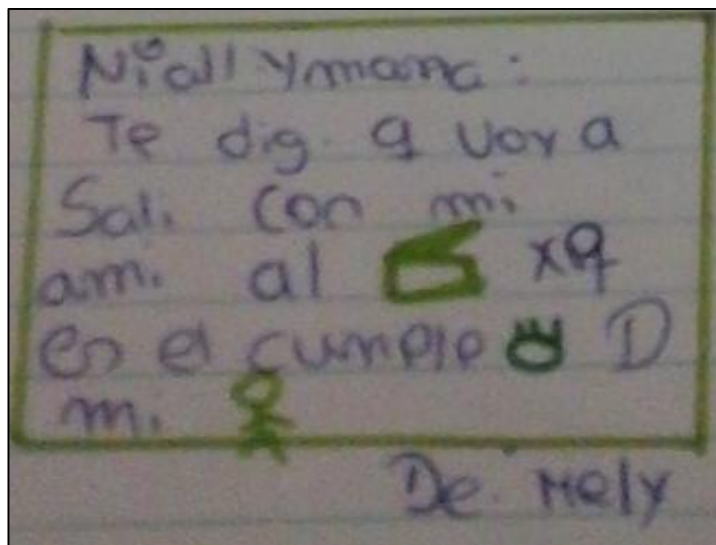 Niall y mama:
Te dig. q voy a
Sal. con mi
am. al xq
es el cumple D
m.
De. Mely